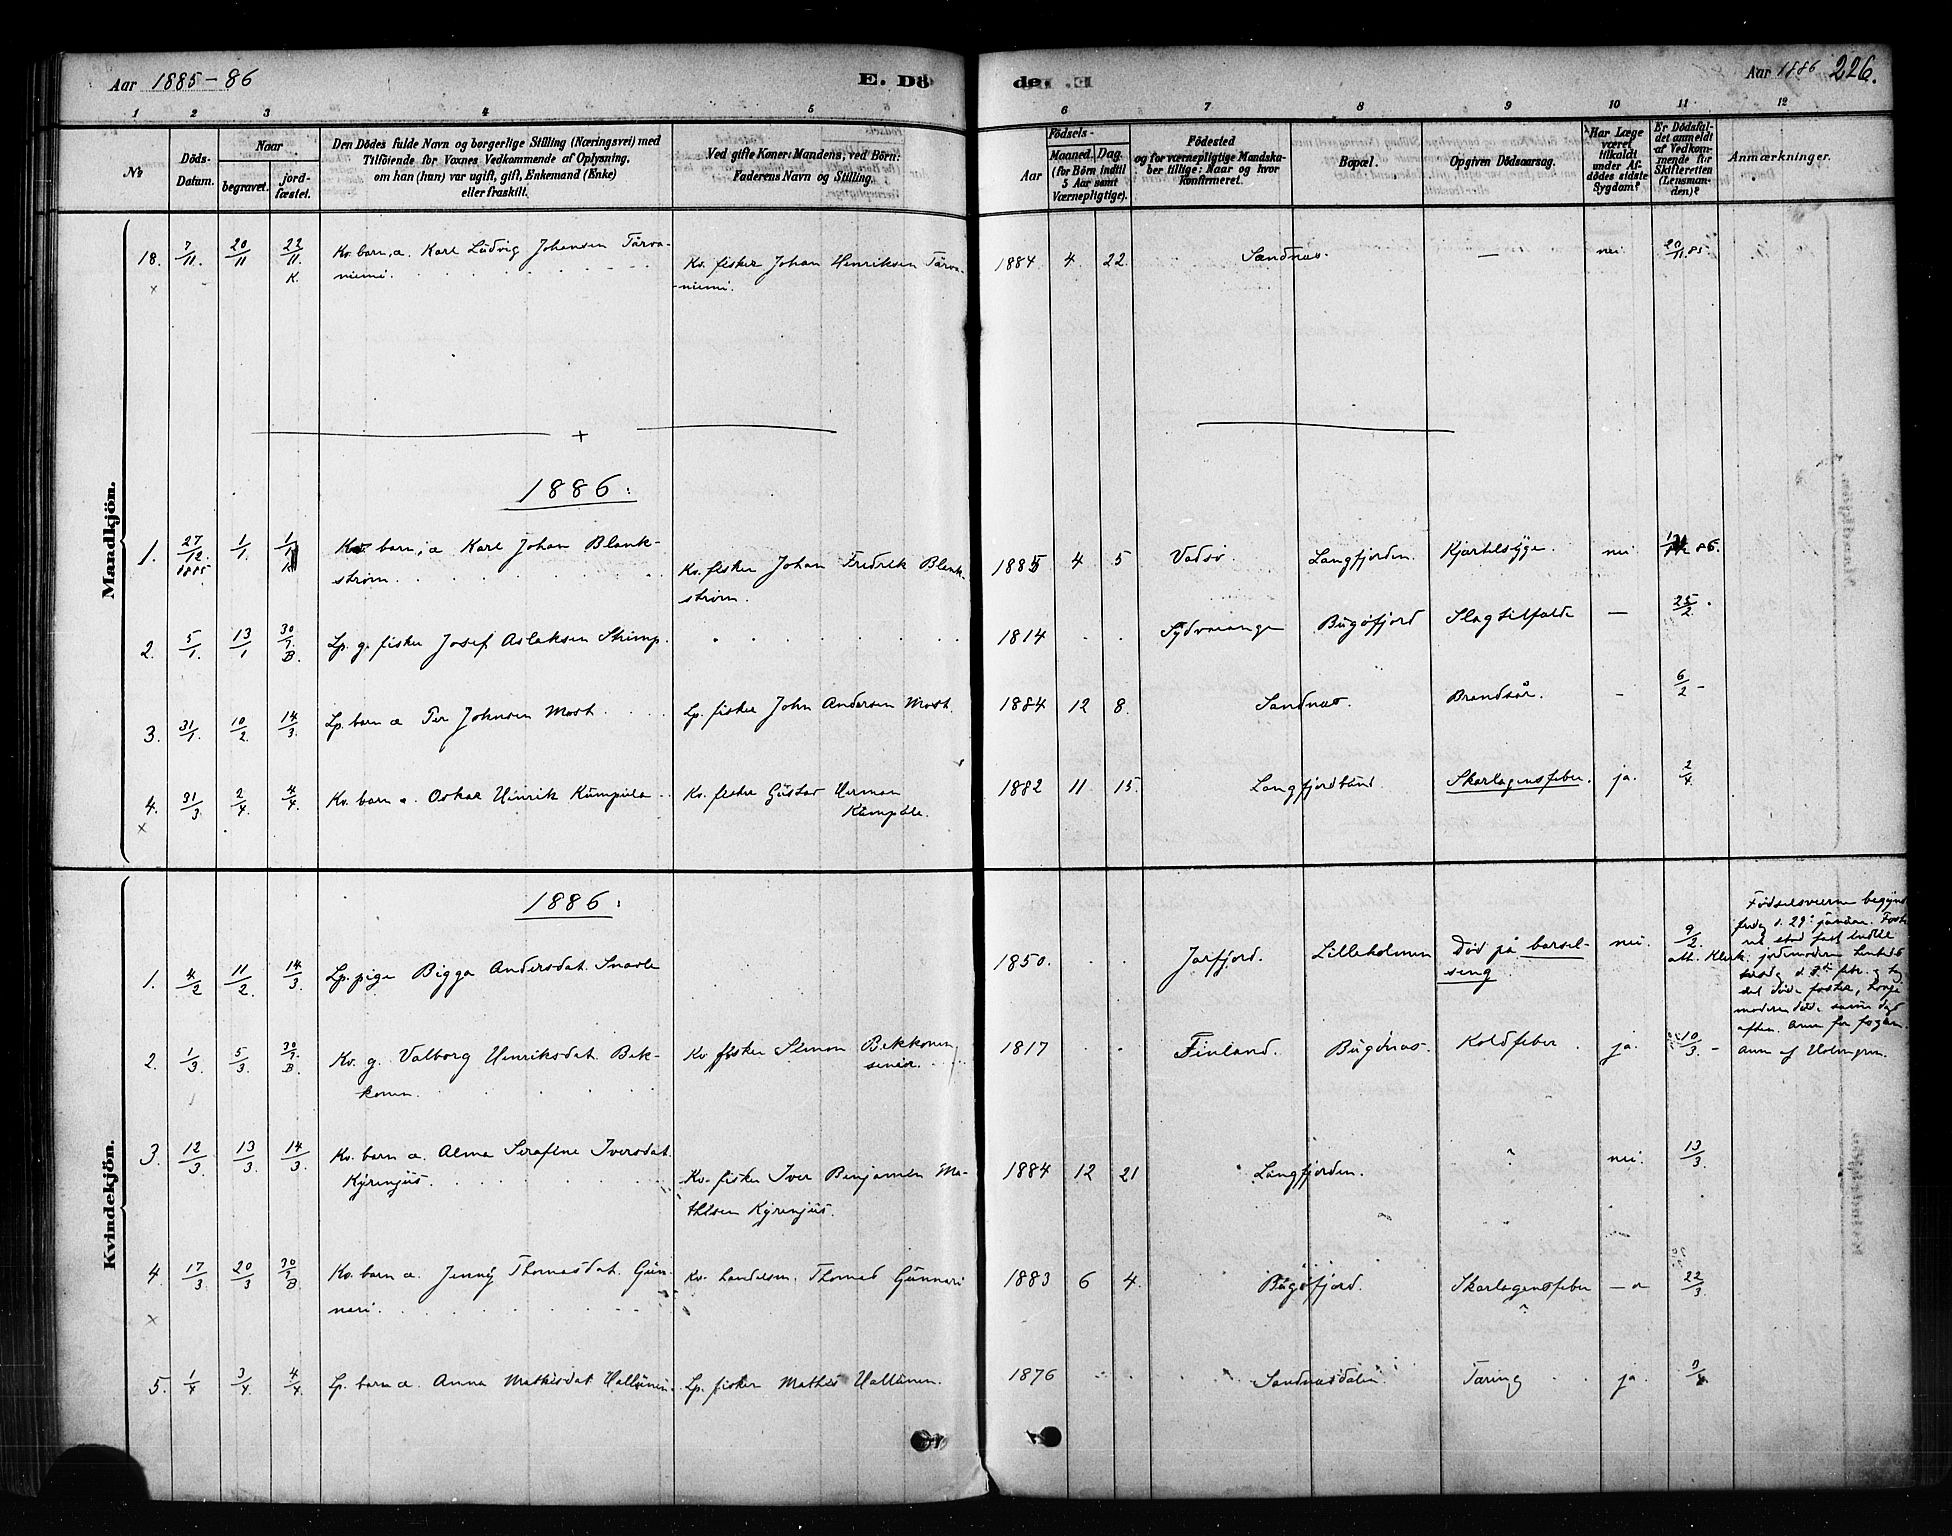 Aar 1885-86
E. Dö
de.
Aar 1886 226.
1 2 3 4 5 6 7 8 9 10 11 12
№
Döds-
Datum.
Naar
begravet.
jord-
fæstet.
Den Dödes fulde Navn og borgerlige Stilling (Næringsvei) med
Tilföiende for Voxnes Vedkommende af Oplysning,
om han (hun) var ugift, gift, Enkemand (Enke)
eller fraskilt.
Ved gifte Koner: Mandens, ved Börn:
Faderens Navn og Stilling.
Födsels-
Aar
Maaned. Dag.
(for Börn indtil
5 Aar samt
Værnepligtige).
Födested
og for værnepligtige Mandska-
ber tillige: Naar og hvor
konfirmeret.
Bopæl.
Opgiven Dödsaarsag.
Har Læge
været
tilkaldt
under Af-
dödes sidste
Sygdom?
Er Dödsfal-
det anmeldt
af Vedkom-
mende for
Skifteretten
(Lensman-
den)?
Anmærkninger.
Mandkjön.
18. 7/11. 20/11 22/11 K. Kv. barn, a. Karl Ludvig Johansen Tärva-
niemi.
Kv. fisker Johan Henriksen Tärva-
-niemi.
1884 4 22. Sandnæs. — nei. 20/11 85.
1886:
1. 27/12 1885 1/1 1/1 Kv. barn, a Karl Johan Blank-
strøm.
Kv. fisker Johan Fredrik Blank-
strøm.
1885 4 5 Vadsø Langfjorden. Kjertelsyge. nei 86.
2. 5/1. 13/1 30/7 B. Lp. g. fisker Josef Aslaksen Skimp.
1814 Sydvaranger Bugøfjord Slagtilfælde — 25/2.
3. 31/1. 10/2 14/3 Lp. barn a Per Johnsen Mosh.
Lp. fisker John Andersen Mosh.
1884 12 8. Sandnæs. Brandsår. - 6/2 -
4. 31/3 2/4 4/4 Kv. barn a. Oskar Hinrik Kumpula
Kv. fisker Gustav Herman
Kumpula.
1882 11 15. Langfjordbund Skarlagensfeber. ja. 2/4
Kvindekjön.
1886:
1. 4/2 11/2. 14/3 Lp. pige Bigga Andersdat. Snaole
1850. Jarfjord. Lilleholmen Død på barsel-
seng. nei. 9/2.
Fødselsveerne begynd
fredag d. 29de januar.
jordmoderen hentedes
aften.
2. 1/3 5/3. 30/7 B. Kv. g. Valborg Henriksdat. Bek-
konen.
Kv fisker Simon Bekkonen
senior.
1817 Finland. Bugønæs. Koldfeber ja. 10/3 -
3. 12/3 13/3. 14/3 Kv. barn a. Alma Serafine Iversdat.
Kyrenjus.
Kv. fisker Iver Benjamin Ma-
thisen Kyrenjus.
1884 12 21 Langfjorden. ? nei. 13/3
4. 17/3 20/3 30/7 B Kv. barn a. Jenny Thomasdat. Gun-
nari.
Kv. handelsm. Thomas Gunnari
1883 6 4. Bugøfjord. Skarlagensfeber
?
22/3
5. 1/4 3/4. 4/4 Lp. barn a. Anna Mathisdat Hallonen.
Lp. fisker Mathis Hallonen.
1876 Sandnæsdalen. Tæring ja.